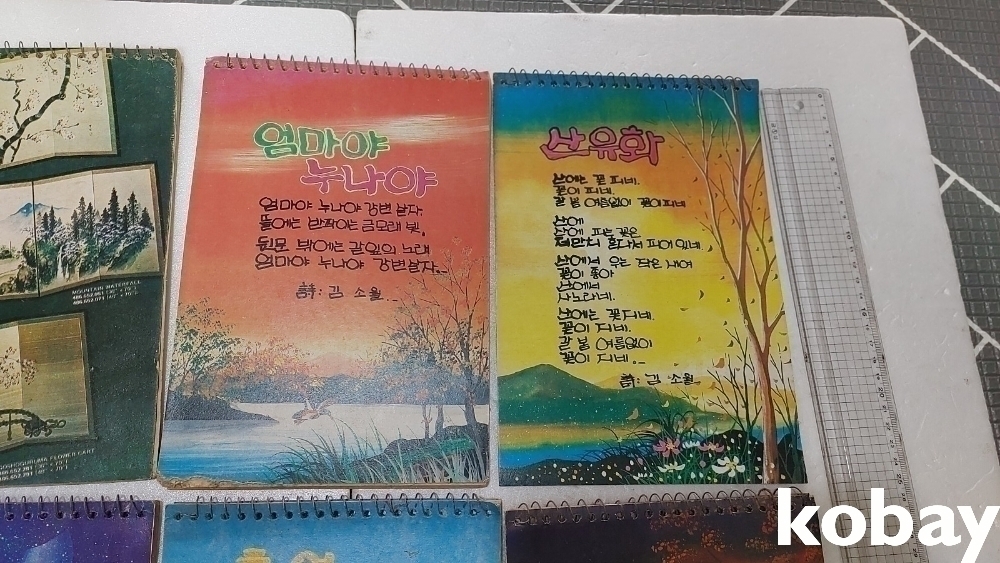 MOUNTAIN WATERFALL
엄마야
누나야
엄마야 누나야 강변 살자
뜰에는 반짝이는 금모래 빛,
뒷문 밖에는 갈잎의 노래
엄마야 누나야 강변살자..
詩: 김 소월..
산유화
산에는 꽃 피네.
꽃이 피네.
갈 봄 여름없이 꽃이피네
산에
산에 피는 꽃은
저만치 혼자서 피어 있네
산에서 우는 작은 새여
꽃이 좋아
산에서
사노라네.
산에는 꽃지네.
꽃이 지네.
갈 봄 여름없이
꽃이 지네..
詩: 김 소월
FLOWER CART
kobay